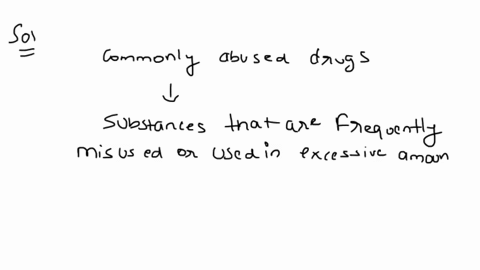 Sol
Commonly abused drugs
↓
Substances that are frequently
misused or used in excessive amoun